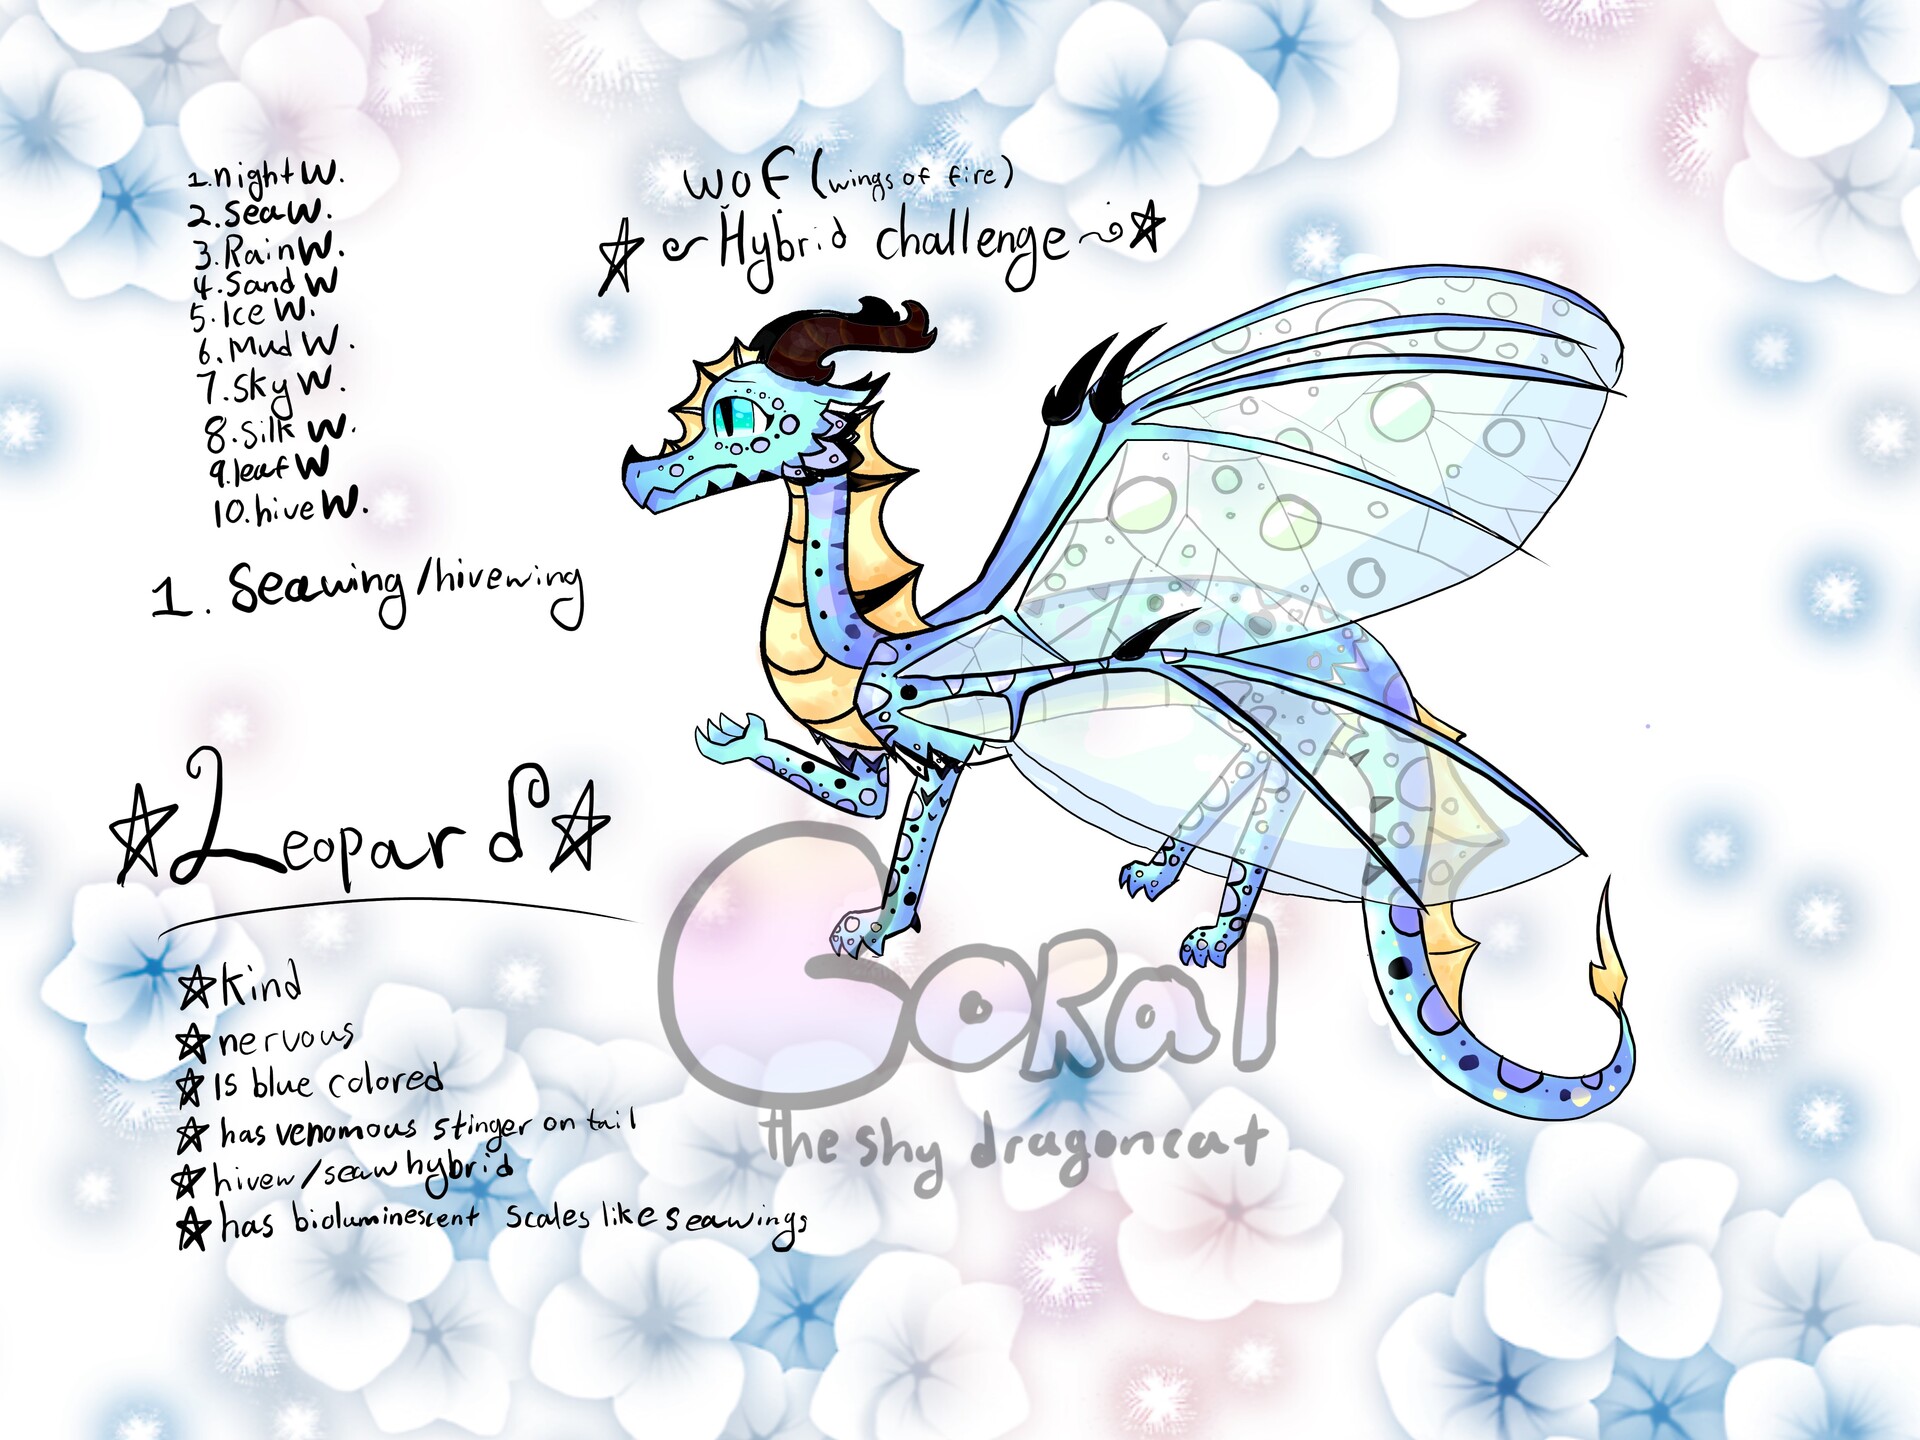 WOF (wings of fire)
Hybrid challenge
1. night W.
2. sea W.
3. Rain W.
4. Sand W
5. Ice W.
6. Mud W.
7. sky W.
8. silk W.
9. leaf W
10. hive W.
1. Seawing/hivewing
Leopard
kind
nervous
is blue colored
has venomous stinger on tail
hivew/seaw hybrid
has bioluminescent scales like seawings
Coral
the shy dragoncat